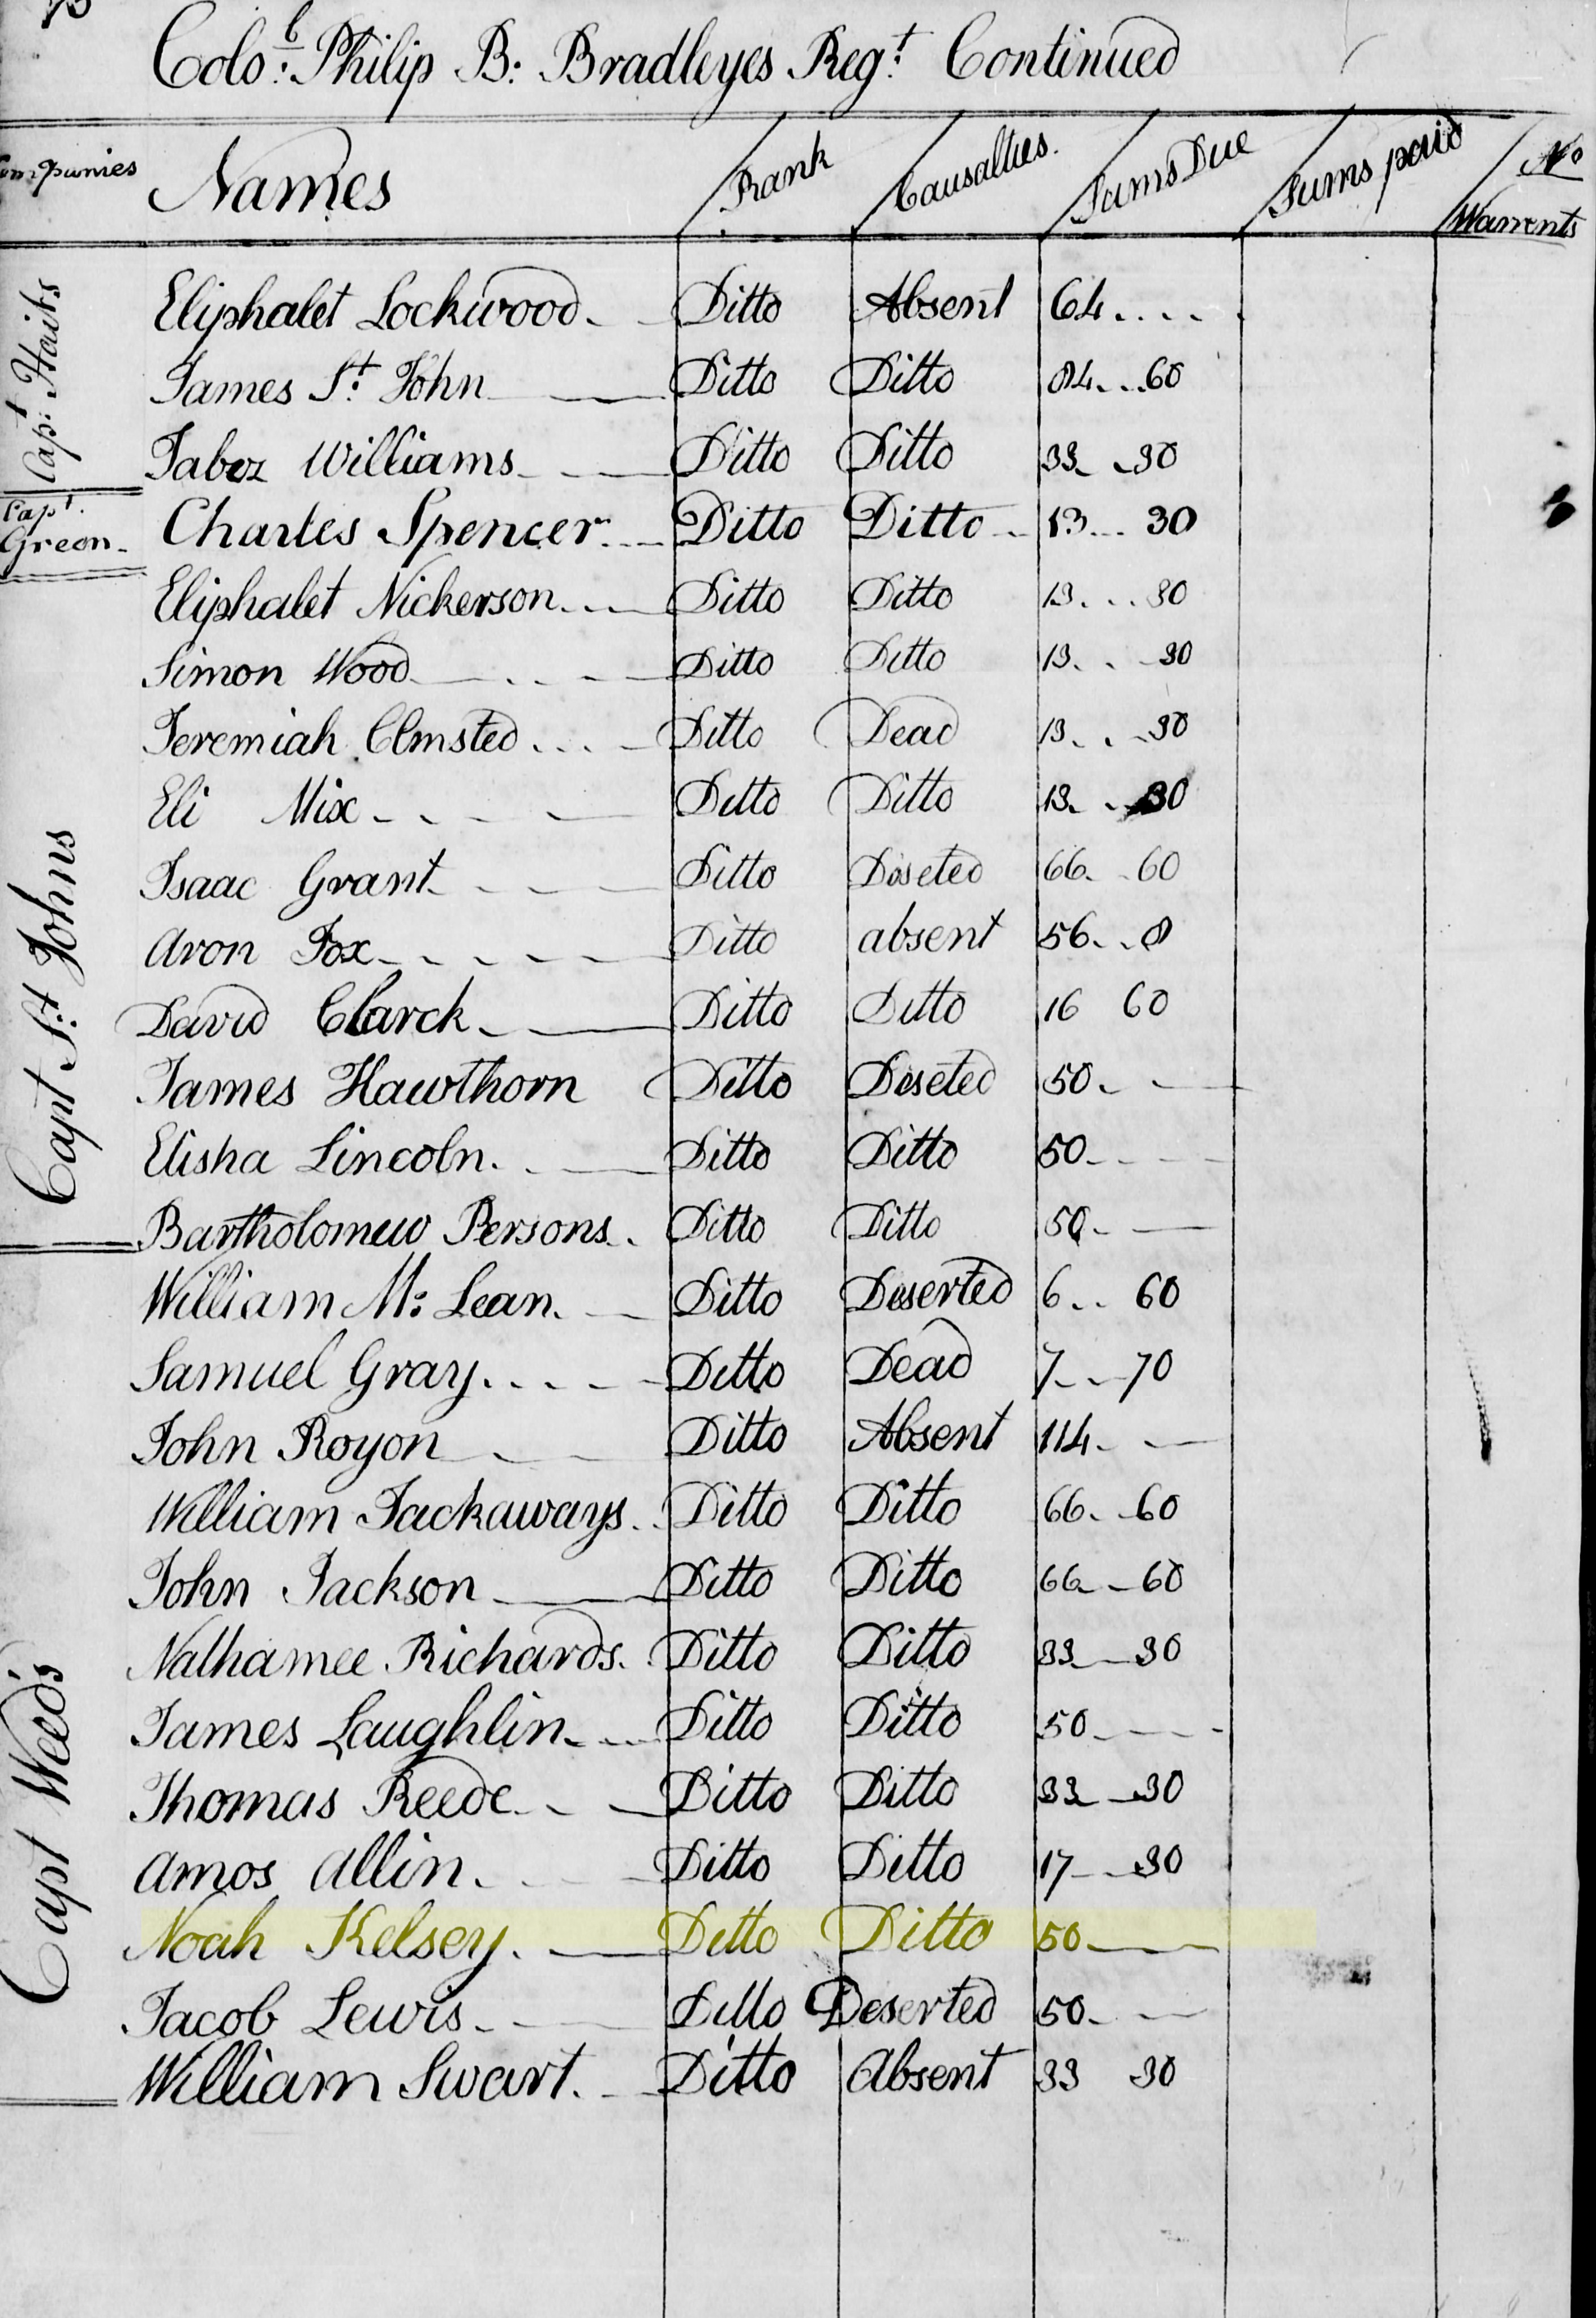 Colo.l: Philip B: Bradleyes Regt. Continued
Companies Names Rank Causalties. Sums Due Sums paid No Warrents
Capt: Haits
Eliphalet Lockwood Ditto Absent 64....
James St. John Ditto Ditto 84...60
Jabez Williams Ditto Ditto 33..30
Capt. Green
Charles Spencer Ditto Ditto 13...30
Capt St. Johns
Eliphalet Nickerson Ditto Ditto 13...30
Simon Wood Ditto Ditto 13...30
Jeremiah Olmsted Ditto Dead 13...30
Eli Mix Ditto Ditto 13...30
Isaac Grant Ditto Deseted 66..60
Aron Fox Ditto absent 56..8
David Clarck Ditto Ditto 16 60
James Hawthorn Ditto Deseted 50
Elisha Lincoln Ditto Ditto 50
Bartholomew Persons Ditto Ditto 50
Capt Weed's
William Mc: Lean Ditto Deserted 6..60
Samuel Gray Ditto Dead 7..70
John Royon Ditto Absent 114
William Jackaways Ditto Ditto 66..60
John Jackson Ditto Ditto 66..60
Nathamee Richards Ditto Ditto 33..30
James Laughlin Ditto Ditto 50
Thomas Reede Ditto Ditto 33..30
Amos Allin Ditto Ditto 17..30
Noah Kelsey Ditto Ditto 50
Jacob Lewis Ditto Deserted 50
William Swart Ditto Absent 33 30